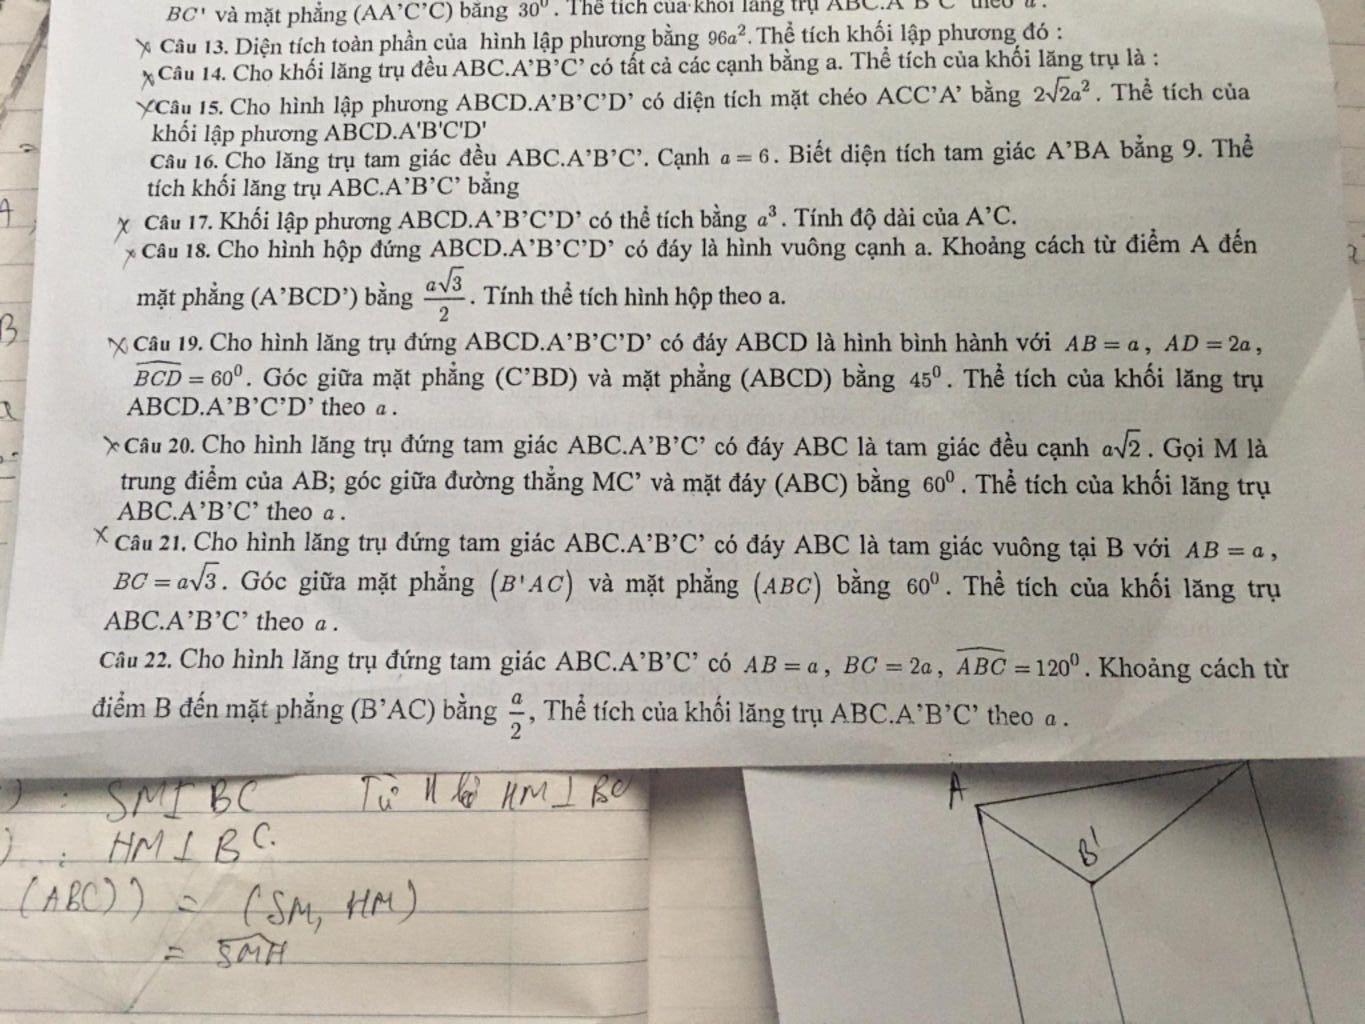 BC' và mặt phẳng (AA'C'C) bằng 30⁰. Thể tích của khối lăng trụ ABC.A'B'C' theo a.
Câu 13. Diện tích toàn phần của hình lập phương bằng 96a². Thể tích khối lập phương đó :
Câu 14. Cho khối lăng trụ đều ABC.A'B'C' có tất cả các cạnh bằng a. Thể tích của khối lăng trụ là :
Câu 15. Cho hình lập phương ABCD.A'B'C'D' có diện tích mặt chéo ACC'A' bằng 2√2a². Thể tích của
khối lập phương ABCD.A'B'C'D'
Câu 16. Cho lăng trụ tam giác đều ABC.A'B'C'. Cạnh a = 6. Biết diện tích tam giác A'BA bằng 9. Thể
tích khối lăng trụ ABC.A'B'C' bằng
Câu 17. Khối lập phương ABCD.A'B'C'D' có thể tích bằng a³. Tính độ dài của A'C.
Câu 18. Cho hình hộp đứng ABCD.A'B'C'D' có đáy là hình vuông cạnh a. Khoảng cách từ điểm A đến
mặt phẳng (A'BCD') bằng a√3/2. Tính thể tích hình hộp theo a.
Câu 19. Cho hình lăng trụ đứng ABCD.A'B'C'D' có đáy ABCD là hình bình hành với AB = a, AD = 2a,
BCD = 60⁰. Góc giữa mặt phẳng (C'BD) và mặt phẳng (ABCD) bằng 45⁰. Thể tích của khối lăng trụ
ABCD.A'B'C'D' theo a.
Câu 20. Cho hình lăng trụ đứng tam giác ABC.A'B'C' có đáy ABC là tam giác đều cạnh a√2. Gọi M là
trung điểm của AB; góc giữa đường thẳng MC' và mặt đáy (ABC) bằng 60⁰. Thể tích của khối lăng trụ
ABC.A'B'C' theo a.
Câu 21. Cho hình lăng trụ đứng tam giác ABC.A'B'C' có đáy ABC là tam giác vuông tại B với AB = a,
BC = a√3. Góc giữa mặt phẳng (B'AC) và mặt phẳng (ABC) bằng 60⁰. Thể tích của khối lăng trụ
ABC.A'B'C' theo a.
Câu 22. Cho hình lăng trụ đứng tam giác ABC.A'B'C' có AB = a, BC = 2a, ABC = 120⁰. Khoảng cách từ
điểm B đến mặt phẳng (B'AC) bằng a/2, Thể tích của khối lăng trụ ABC.A'B'C' theo a.
SM⊥BC Từ H kẻ HM⊥BC
HM⊥BC.
(ABC)) = (SM, HM)
= SMH
A
B'